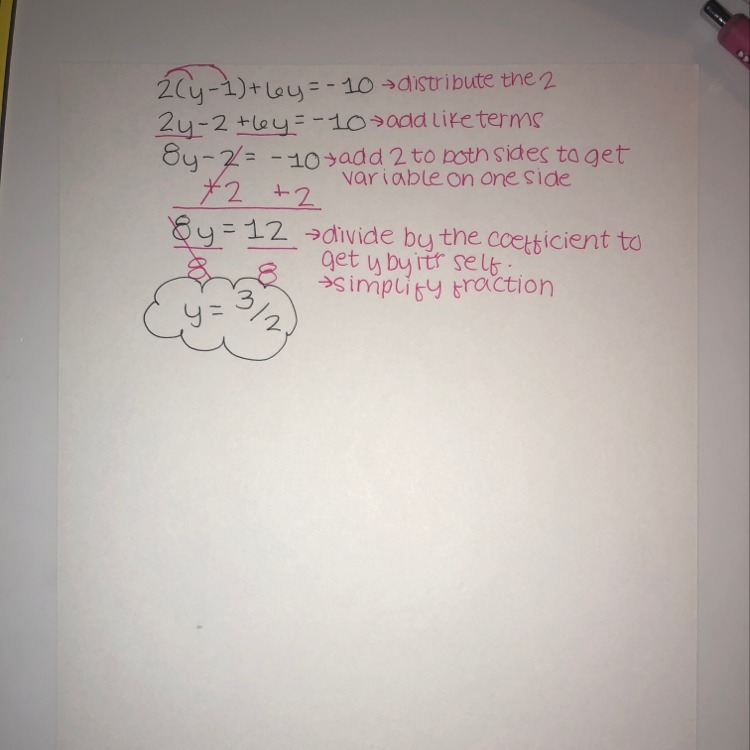 2(y-1)+6y=-10→distribute the 2
2y-2+6y=-10→add like terms
8y-2=-10→add 2 to both sides to get
variable on one side
+2 +2
8y=12→divide by the coefficient to
get y by itr self.
8 8
→simplify fraction
y=3/2